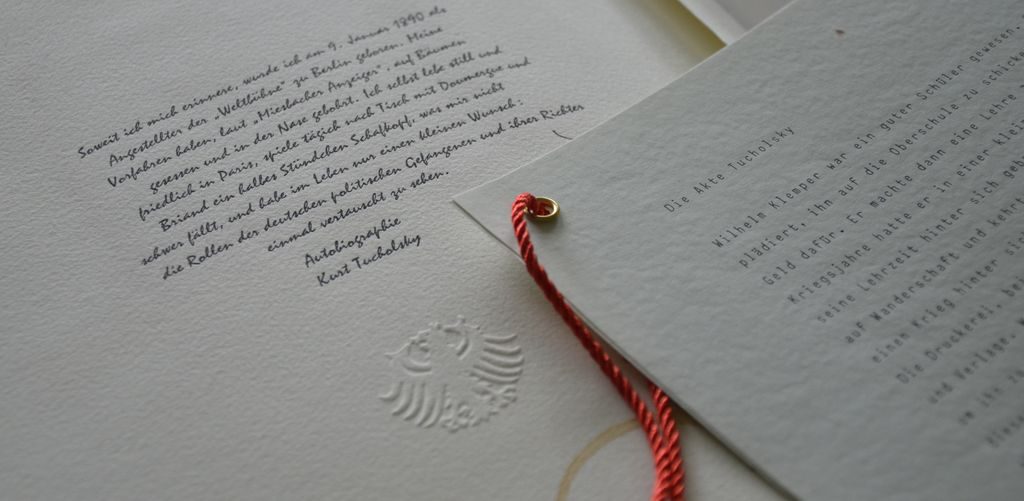 Soweit ich mich erinnere, wurde ich am 9. Januar 1890 als
Angestellter der „Weltbühne“ zu Berlin geboren. Meine
Vorfahren haben, laut „Miesbacher Anzeiger“, auf Bäumen
gesessen und in der Nase gebohrt. Ich selbst lebe still und
friedlich in Paris, spiele täglich nach Tisch mit Doumergue und
Briand ein halbes Stündchen Schafkopf, was mir nicht
schwer fällt, und habe im Leben nur einen kleinen Wunsch:
die Rollen der deutschen politischen Gefangenen und ihrer Richter
einmal vertauscht zu sehen.
Autobiographie
Kurt Tucholsky
Die Akte Tucholsky
Wilhelm Klemper war ein guter Schüler gewesen.
plädiert, ihn auf die Oberschule zu schicke
Geld dafür. Er machte dann eine Lehre
Kriegsjahre hatte er in einer klei
seine Lehrzeit hinter sich geb
auf Wanderschaft und kehrt
einen Krieg hinter si
Die Druckerei, be
und Verlage.
um ihn zu